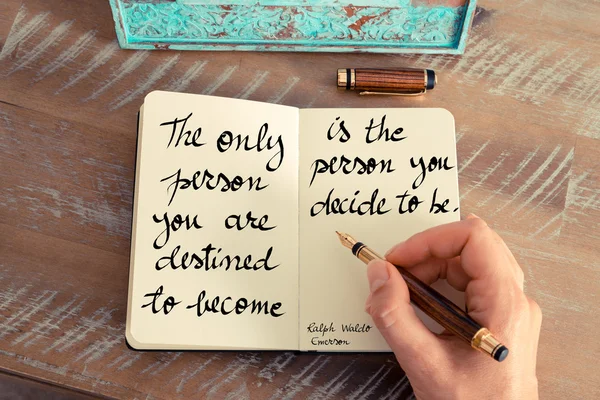 The only
person
you are
destined
to become
is the
person you
decide to be.
Ralph Waldo
Emerson